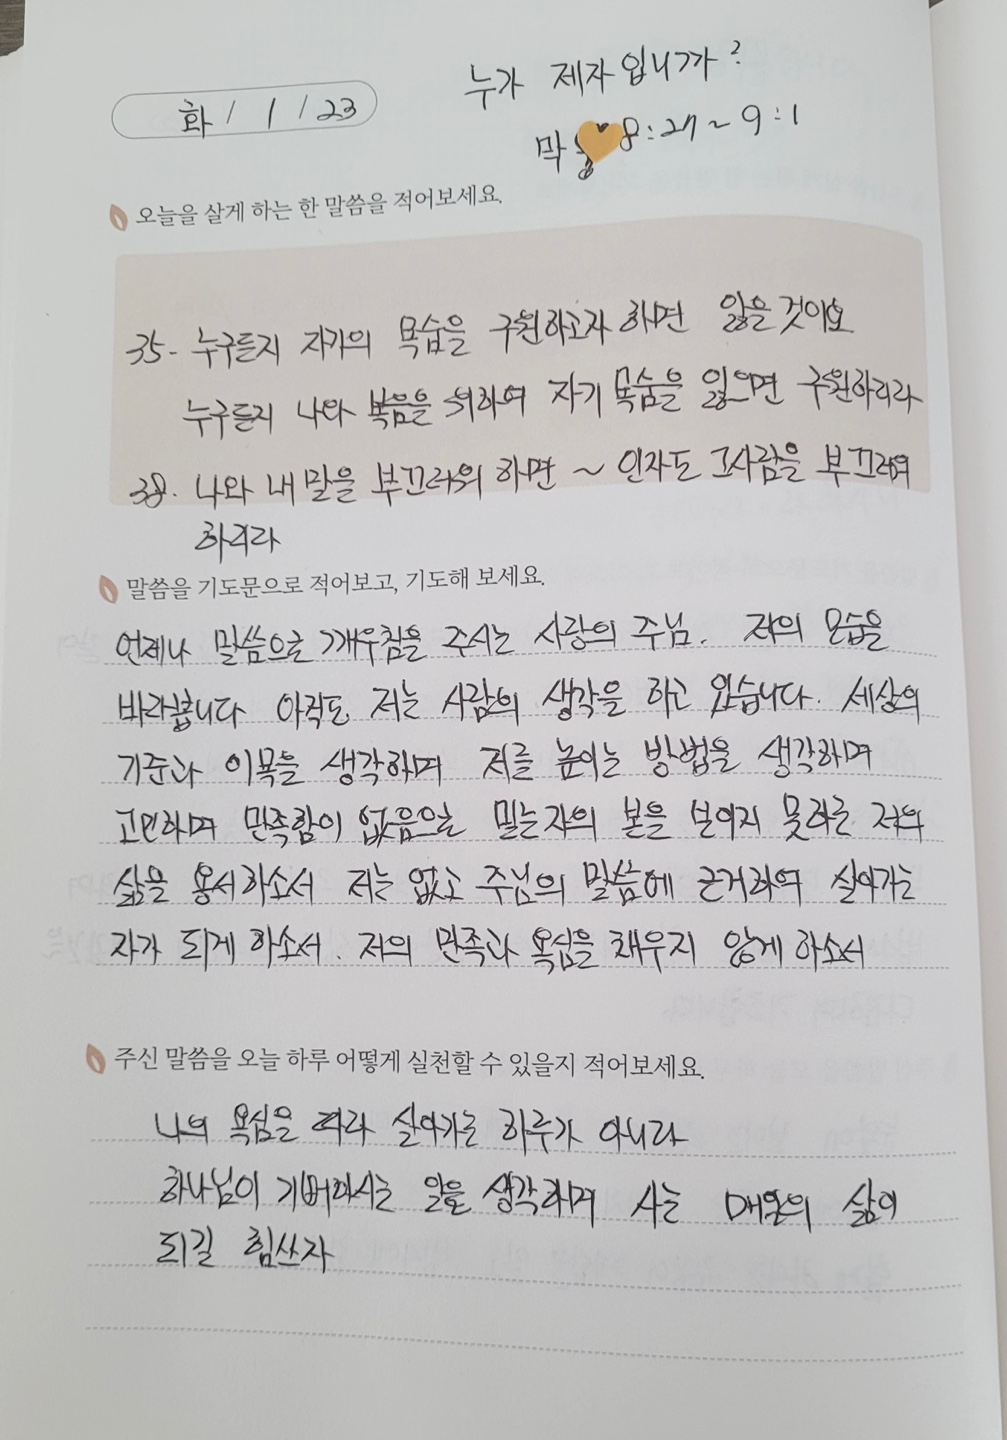 누가 제자입니까?
화 / 1 / 23
막 8:27~9:1
오늘을 살게 하는 한 말씀을 적어보세요.
35- 누구든지 자기의 목숨을 구원하고자 하면 잃을 것이요
누구든지 나와 복음을 위하여 자기 목숨을 잃으면 구원하리라
38. 나와 내 말을 부끄러워 하면 ~ 인자도 그사람을 부끄러워
하리라
말씀을 기도문으로 적어보고, 기도해 보세요.
언제나 말씀으로 깨우침을 주시는 사랑의 주님. 저의 모습을
바라봅니다 아직도 저는 사람의 생각을 하고 있습니다. 세상의
기준과 이목을 생각하며 저를 높이는 방법을 생각하며
고민하며 만족함이 없음으로 믿는자의 본을 보이지 못하는 저의
삶을 용서하소서 저는 없고 주님의 말씀에 근거하여 살아가는
자가 되게 하소서. 저의 만족과 욕심을 채우지 않게 하소서
주신 말씀을 오늘 하루 어떻게 실천할 수 있을지 적어보세요.
나의 욕심을 따라 살아가는 하루가 아니라
하나님이 기뻐하시는 일을 생각하며 사는 매일의 삶이
되길 힘쓰자